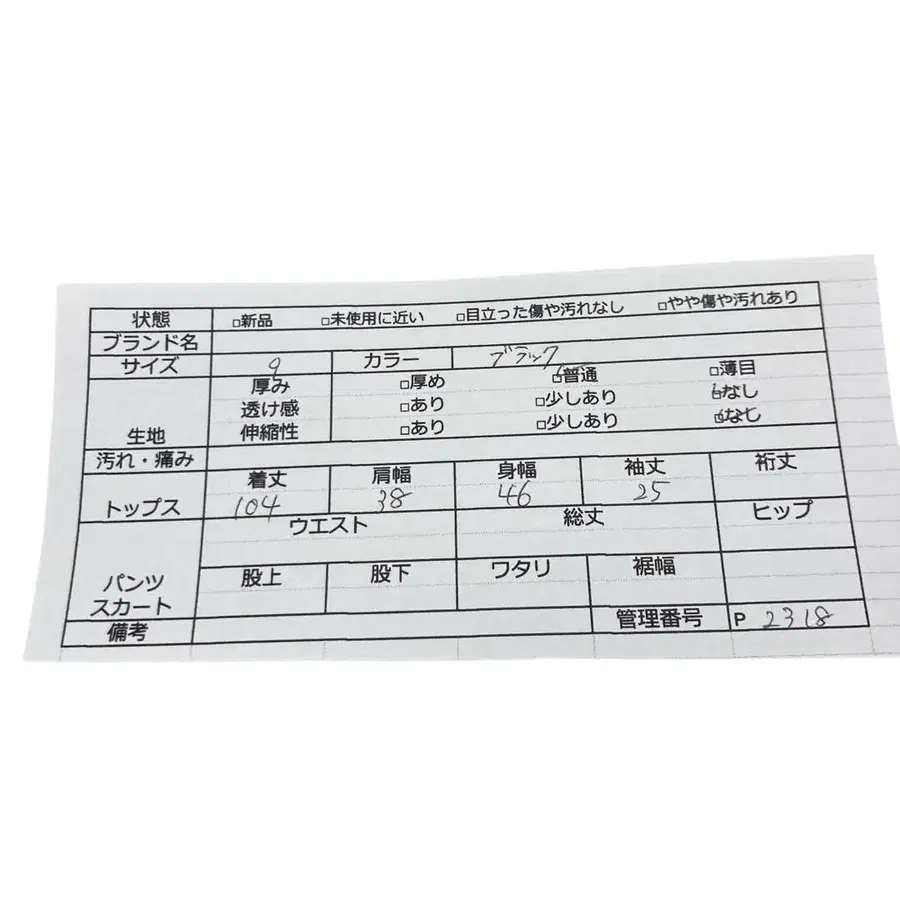 状態 □新品 □未使用に近い □目立った傷や汚れなし □やや傷や汚れあり
ブランド名
サイズ 9 カラー ブラック
生地 厚み □厚め ☑普通 □薄目
透け感 □あり □少しあり ☑なし
伸縮性 □あり □少しあり ☑なし
汚れ・痛み
トップス 着丈 肩幅 身幅 袖丈 裄丈
104 38 46 25
パンツ スカート ウエスト 総丈 ヒップ
股上 股下 ワタリ 裾幅
備考 管理番号 P 2318